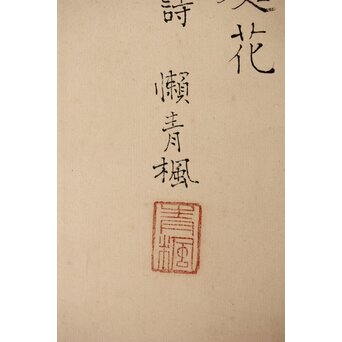 花
詩 懶青楓
青楓